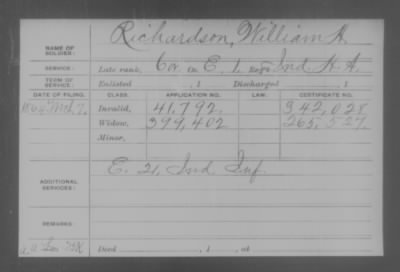 Richardson, William H.
NAME OF SOLDIER:
SERVICE: Late rank, Co. E, 1 Reg't Ind. H. A.
TERM OF SERVICE: Enlisted , 1 Discharged , 1
DATE OF FILING. CLASS. APPLICATION NO. LAW. CERTIFICATE NO.
1864, Mch. 7. Invalid, 41,792. 342,028
Widow, 394,402 265,527.
Minor,
ADDITIONAL SERVICES: E. 21, Ind Inf.
REMARKS:
Died , 1 , at